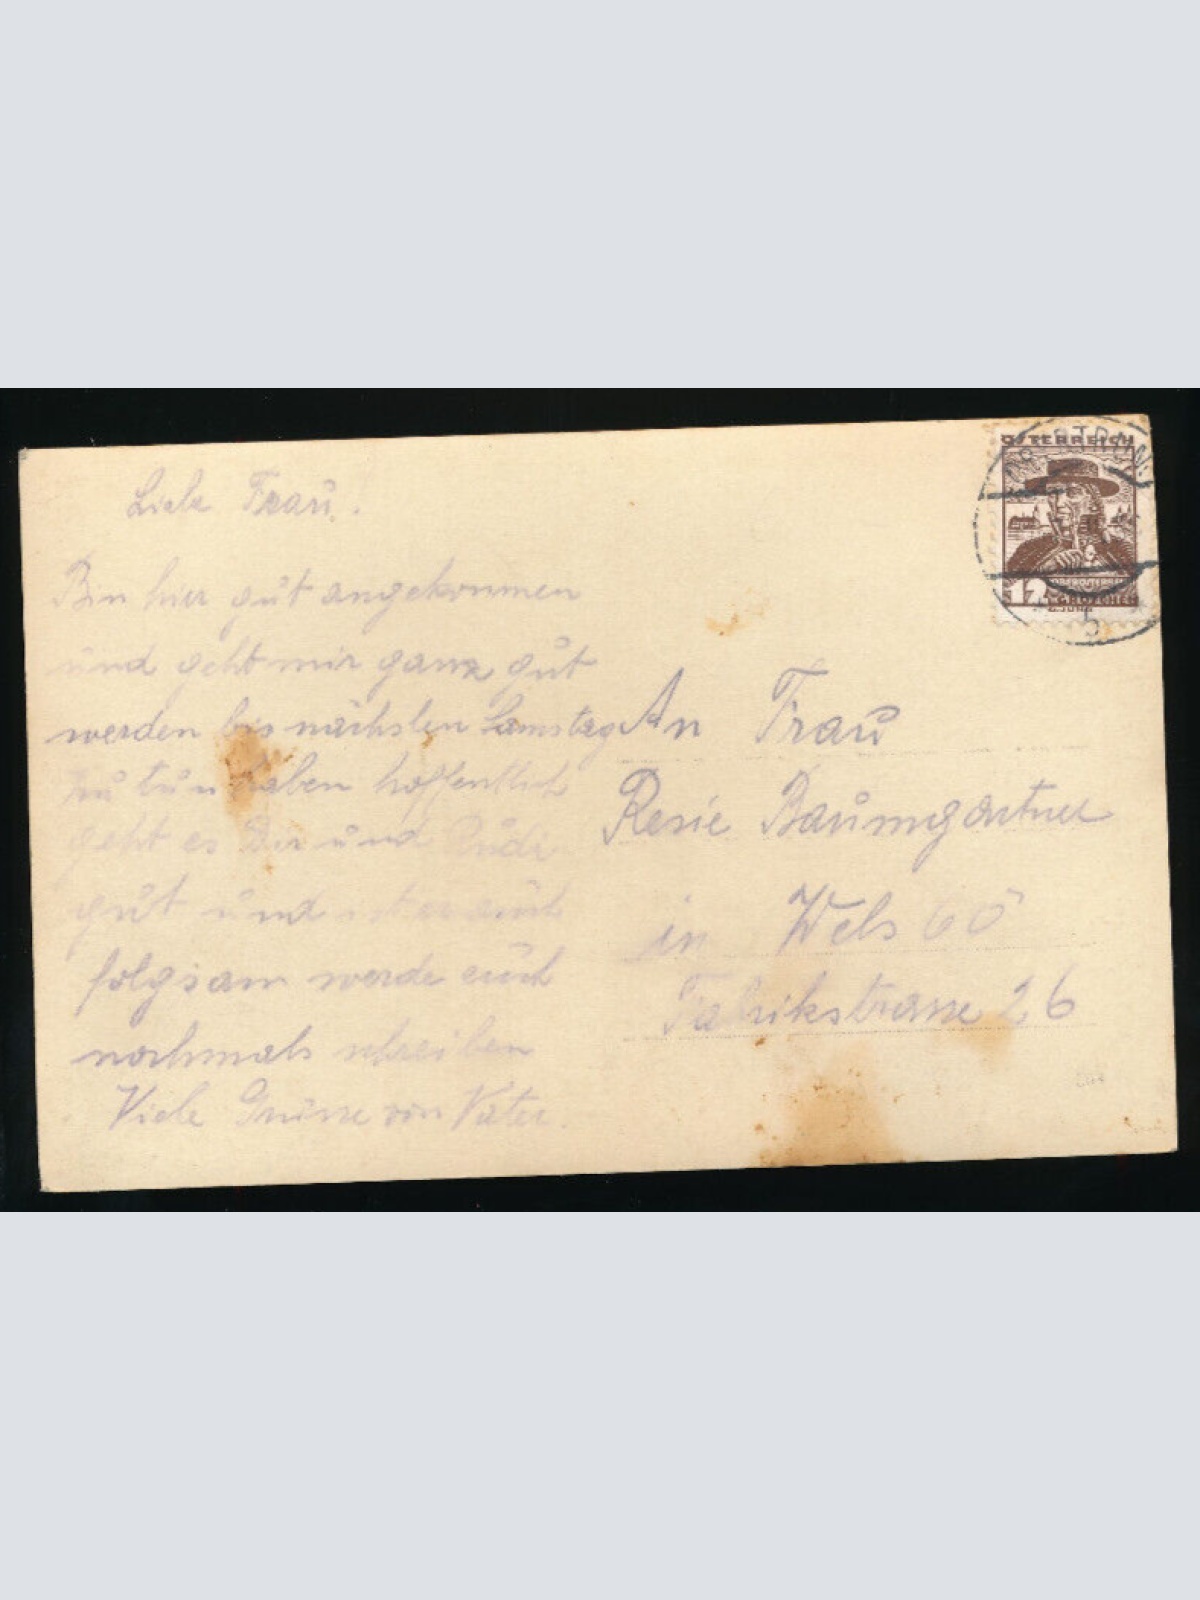 Liebe Frau.
Bin hier gut angekommen
und geht mir ganz gut
werden bis nächsten Samstag
zu tun haben hoffentlich
geht es Dir und Rudi
gut und ist er auch
folgsam werde euch
nochmals schreiben
Viele Grüsse von Vater.
ÖSTERREICH
12 GROSCHEN
5
An Frau
Resie Baumgartner
in Wels OÖ
Fabrikstrasse 26